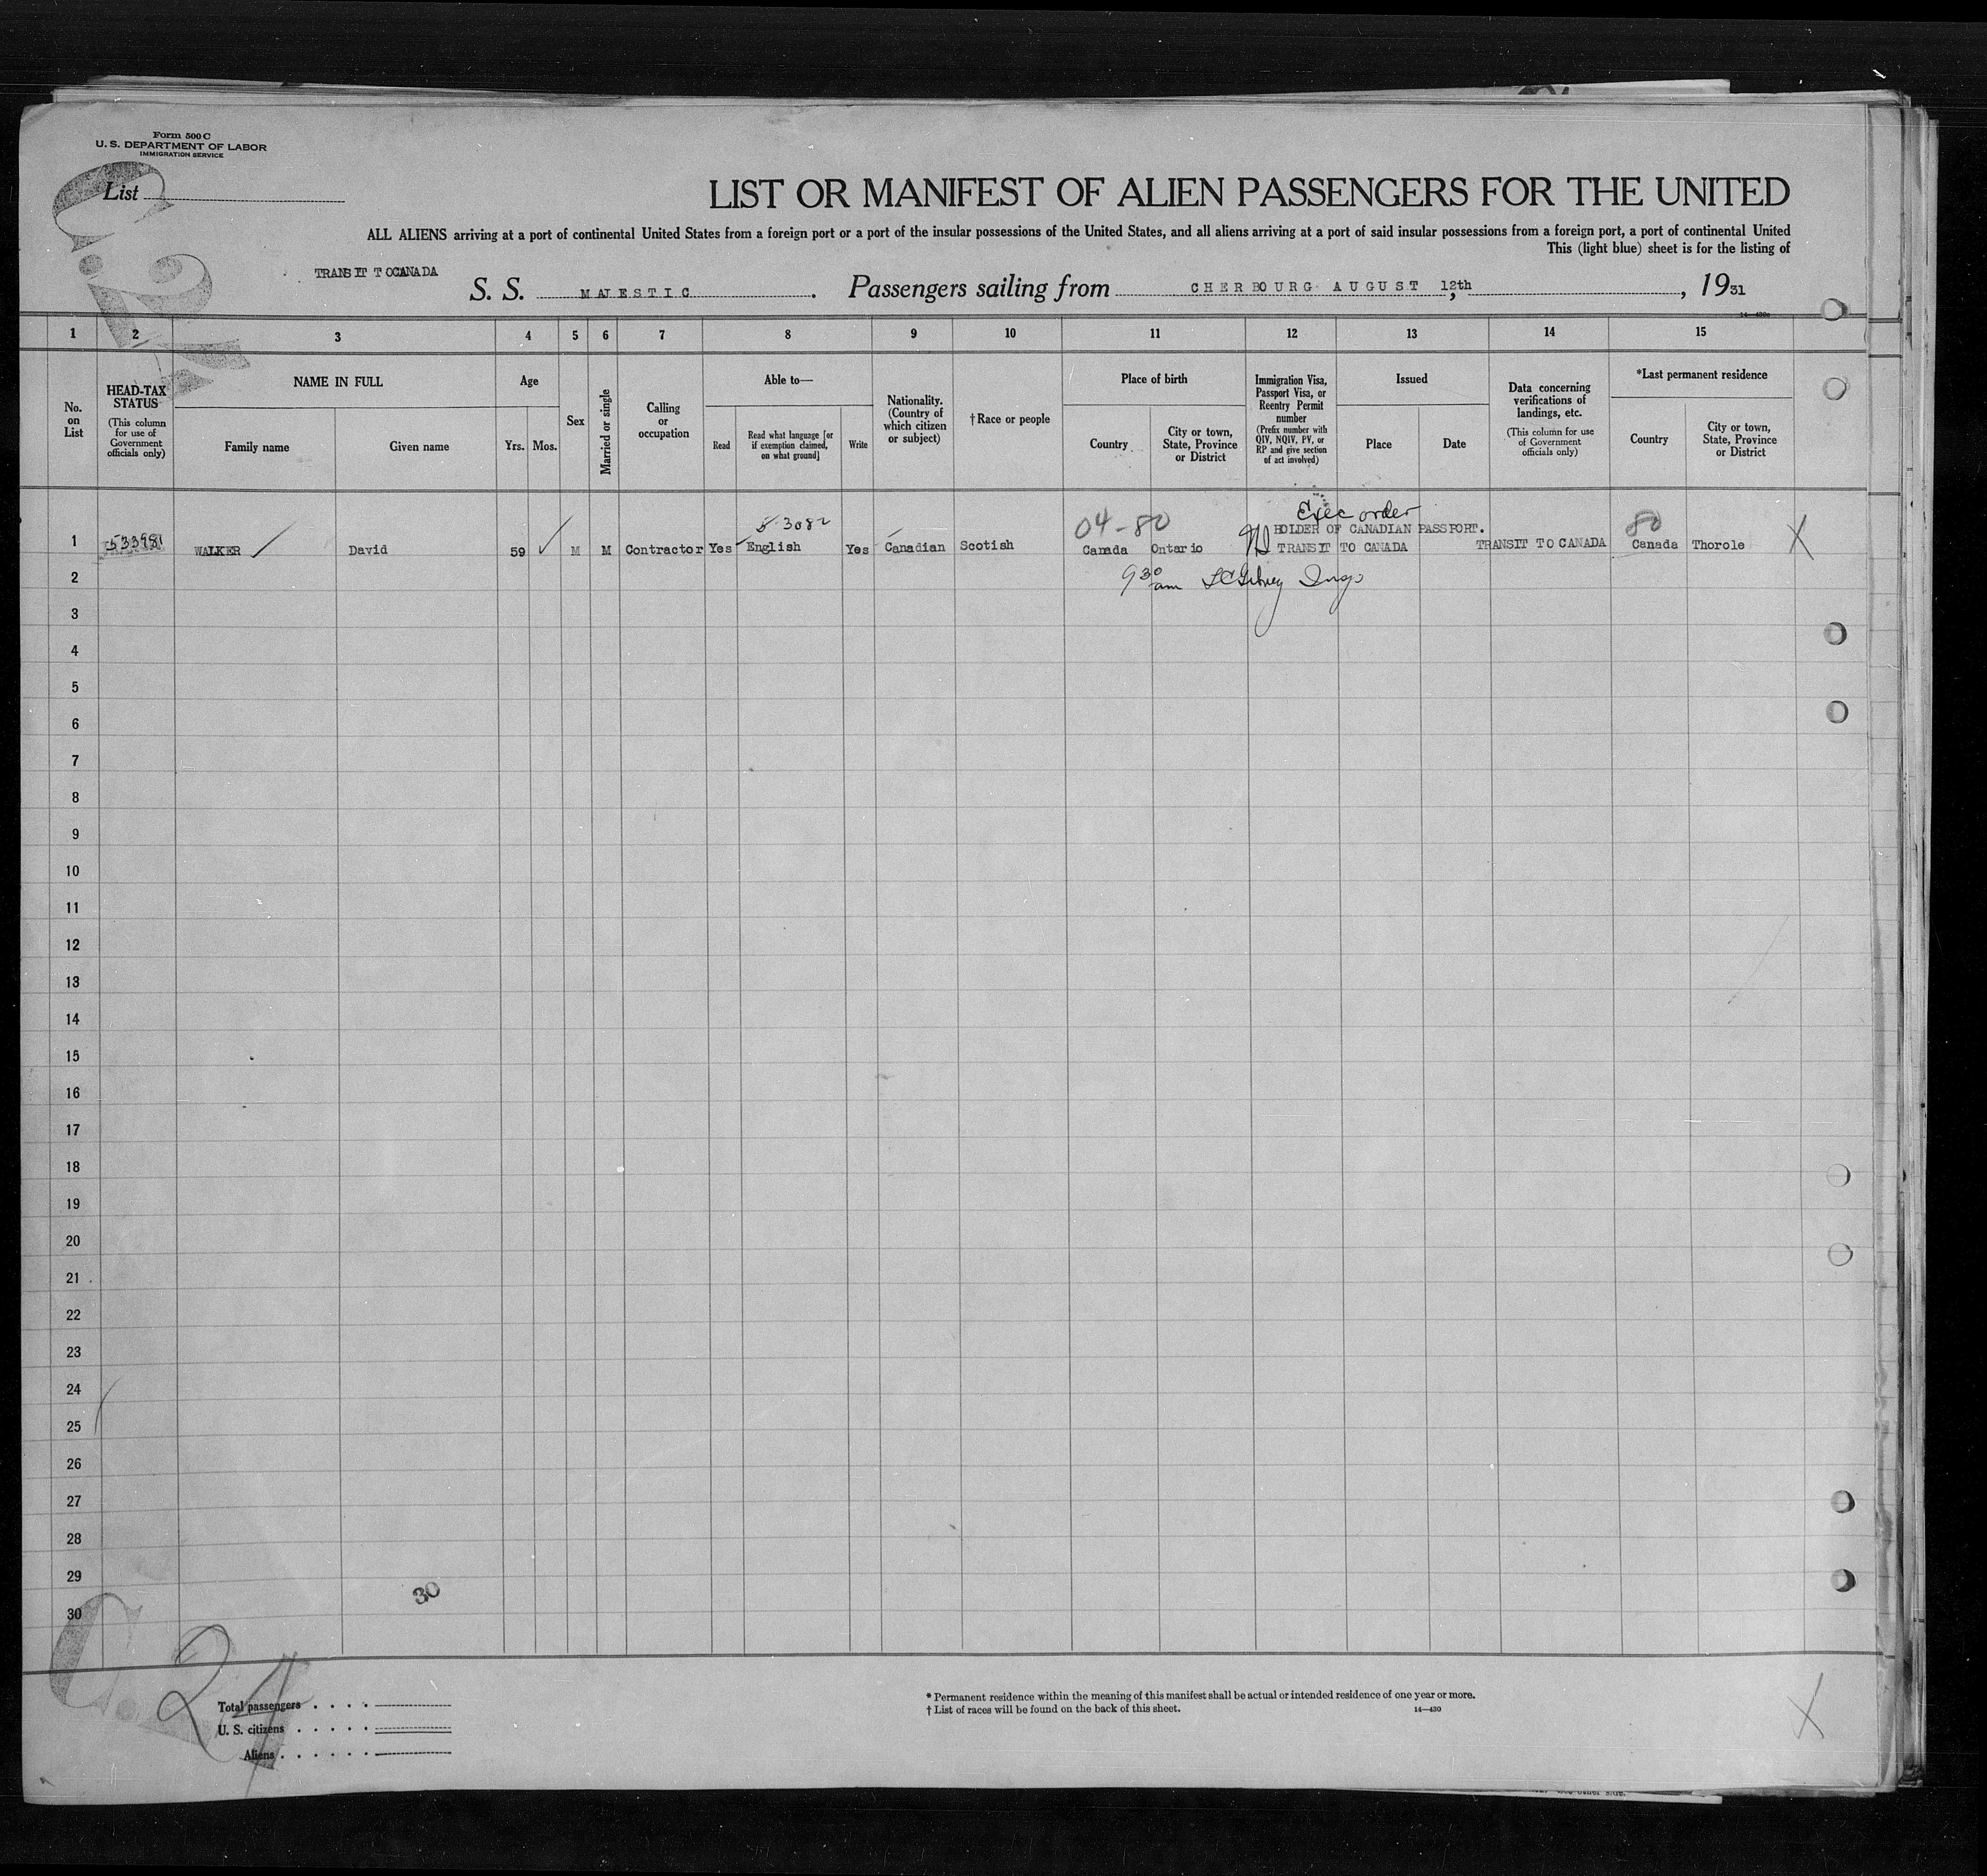 Form 500 C
U. S. DEPARTMENT OF LABOR
IMMIGRATION SERVICE
List
LIST OR MANIFEST OF ALIEN PASSENGERS FOR THE UNITED
ALL ALIENS arriving at a port of continental United States from a foreign port or a port of the insular possessions of the United States, and all aliens arriving at a port of said insular possessions from a foreign port, a port of continental United
This (light blue) sheet is for the listing of
TRANSIT TO CANADA
S. S. MAJESTIC. Passengers sailing from CHERBOURG AUGUST 12th, , 1931
1 2 3 4 5 6 7 8 9 10 11 12 13 14 15
No. on List
HEAD-TAX STATUS
(This column for use of Government officials only)
NAME IN FULL
Family name
Given name
Age
Yrs.
Mos.
Sex
Married or single
Calling or occupation
Able to—
Read
Read what language [or if exemption claimed, on what ground]
Write
Nationality. (Country of which citizen or subject)
†Race or people
Place of birth
Country
City or town, State, Province or District
Immigration Visa, Passport Visa, or Reentry Permit number
(Prefix number with QIV, NQIV, PV, or RP and give section of act involved)
Issued
Place
Date
Data concerning verifications of landings, etc.
(This column for use of Government officials only)
*Last permanent residence
Country
City or town, State, Province or District
5·3082
04-80
Exec order
HOLDER OF CANADIAN PASSPORT.
80
1 53398 WALKER David 59 M M Contractor Yes English Yes Canadian Scotish Canada Ontario TRANSIT TO CANADA TRANSIT TO CANADA Canada Thorole X
9 30 am
2
3
4
5
6
7
8
9
10
11
12
13
14
15
16
17
18
19
20
21
22
23
24
25
26
27
28
29
30
30
C. 24
Total passengers
U. S. citizens
Aliens
* Permanent residence within the meaning of this manifest shall be actual or intended residence of one year or more.
† List of races will be found on the back of this sheet.
14—430
X